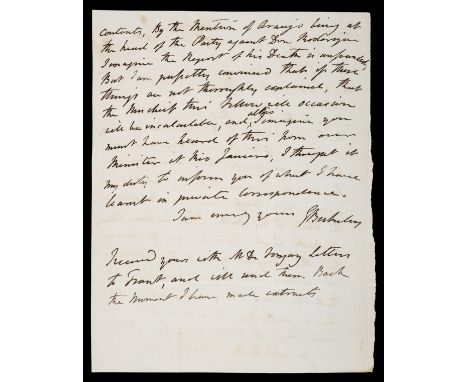 contents, By the Mention of Araujo being at
the head of the Party against Don Roderigo
I imagine the Report of his Death is unfounded,
But I am perfectly convinced that if these
things are not thoroughly explained, that
the Mischief this Fellow will occasion
will be incalculable, and, altho I imagine you
must have heard of this from our
Minister at Rio Janeiro, I thought it
my duty to inform you of what I have
learnt in private Correspondence.
I am ever yours G Berkeley
I received yours with M De Letters
to Trant, and will send them Back
the Moment I have made extracts